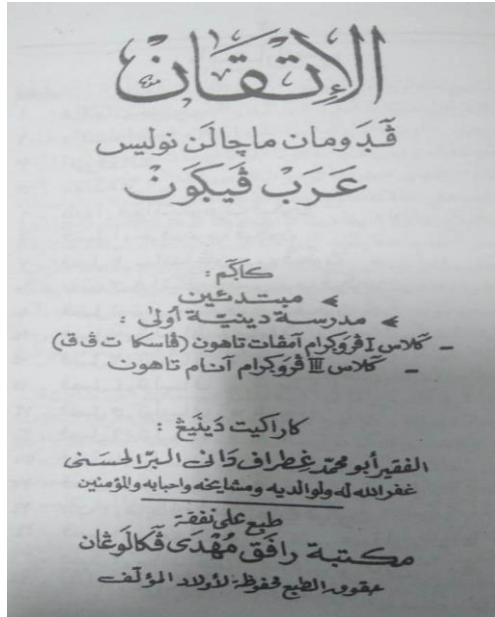 الإتقان
ڤدومان ماچا لن نوليس
عرب ڤيكون
كاڮم :
مبتدئين
مدرسة دينية أولى :
- كلاس I ڤروڮرام آمڤات تاهون (ڤاسكا ت ڤ ق)
- كلاس III ڤروڮرام آنام تاهون
كاراكيت دينيڠ :
الفقير أبو محمد غطراف دانى البر الحسنى
غفر الله له ولوالديه ومشايخه واحبابه والمؤمنين
طبع على نفقة
مكتبة رافق مهدى ڤكالوڠان
حقوق الطبع محفوظة لأولاد المؤلف